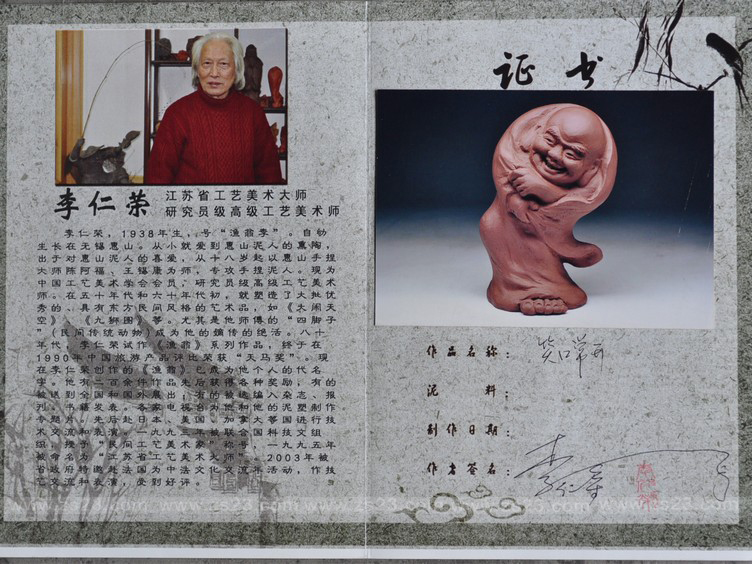 李仁荣
江苏省工艺美术大师
研究员级高级工艺美术师
李仁荣，1938年生，号“渔翁李”。自幼
生长在无锡惠山。从小就爱到惠山泥人的熏陶，
出于对惠山泥人的喜爱，从十八岁起以惠山手捏
大师陈阿福、王锡康为师，专攻手捏泥人。现为
中国工艺美术学会会员，研究员级高级工艺美术
师。在五十年代和六十年代初，就塑造了大批优
秀的、具有东方民间风格的艺术品，如《大闹天
空》、《九狮图》等。尤其是他师傅的“四脚子
”（民间传统动物）成为他的嫡传的绝活。八十
年代，李仁荣试作《渔翁》系列作品，终于在
1990年中国旅游产品评比荣获“天马奖”。现
在李仁荣创作的《渔翁》已成为他个人的代名
字。他有二百余件作品先后获得各种奖励，有的
被送到全国和国外展出，有的被选编入杂志、报
刊、书籍发表。多家电视台为他和他的泥塑制作
专题片，先后赴日本、美国、加拿大等国进行技
术交流和表演。一九九三年被联合国科技文组
组，授予“民间工艺美术家”称号，一九九五年
被命名为“江苏省工艺美术大师”。2003年被
省政府特邀赴法国为中法文化交流年活动，作技
艺交流和表演，受到好评。
证书
作品名称：笑口常开
泥料：
制作日期：
作者签名：李仁荣
www.zs23.com